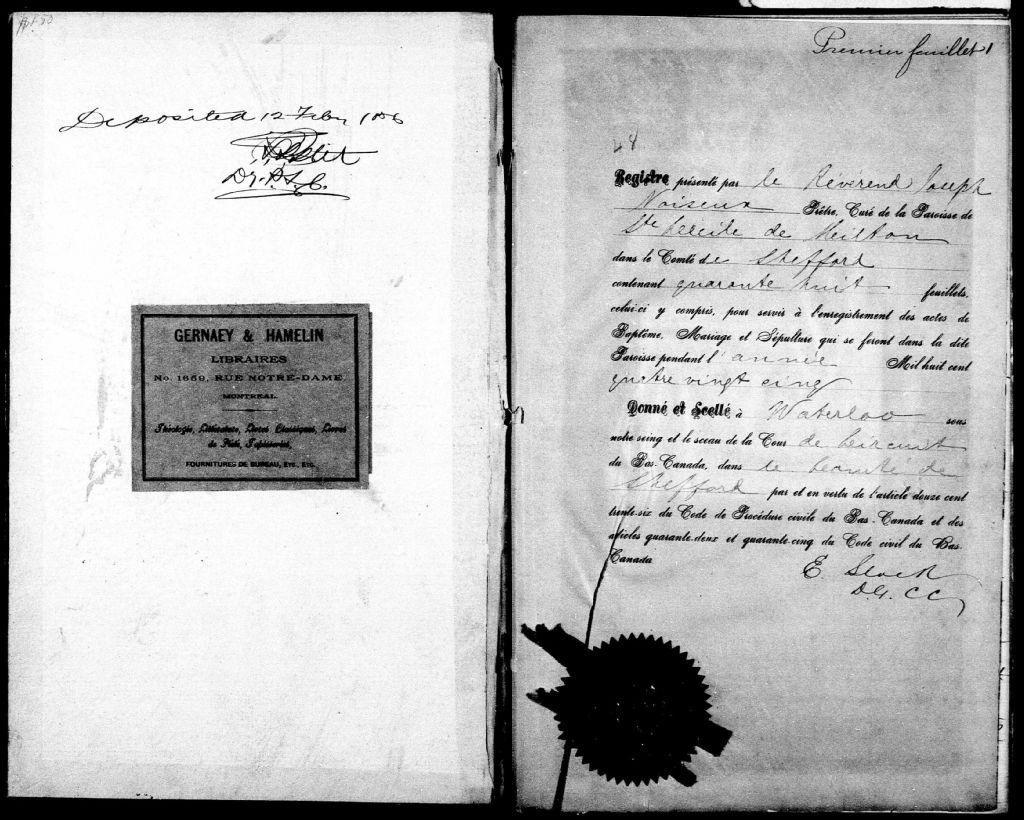 Deposited 12 Feby 1886
GERNAEY & HAMELIN
LIBRAIRES
No. 1669, RUE NOTRE-DAME
MONTREAL
Théologie, Littérature, Livres Classiques, Livres
de Piété, Tapisseries,
FOURNITURES DE BUREAU, ETC., ETC.
Premier feuillet 1
48
Registre présenté par le Révérend Joseph
Noiseux Prêtre, Curé de la Paroisse de
Ste Cécile de Milton
dans le Comté de Shefford
contenant quarante huit feuillets,
celui-ci y compris, pour servir à l'enregistrement des actes de
Baptême, Mariage et Sépulture qui se feront dans la dite
Paroisse pendant l'année Mil huit cent
quatre vingt cinq
Donné et Scellé à Waterloo sous
notre seing et le sceau de la Cour de Circuit
du Bas-Canada, dans le Comté de
Shefford par et en vertu de l'article douze cent
trente-six du Code de Procédure civile du Bas-Canada et des
articles quarante-deux et quarante-cinq du Code civil du Bas-
Canada
E. Slack
D.G. CC